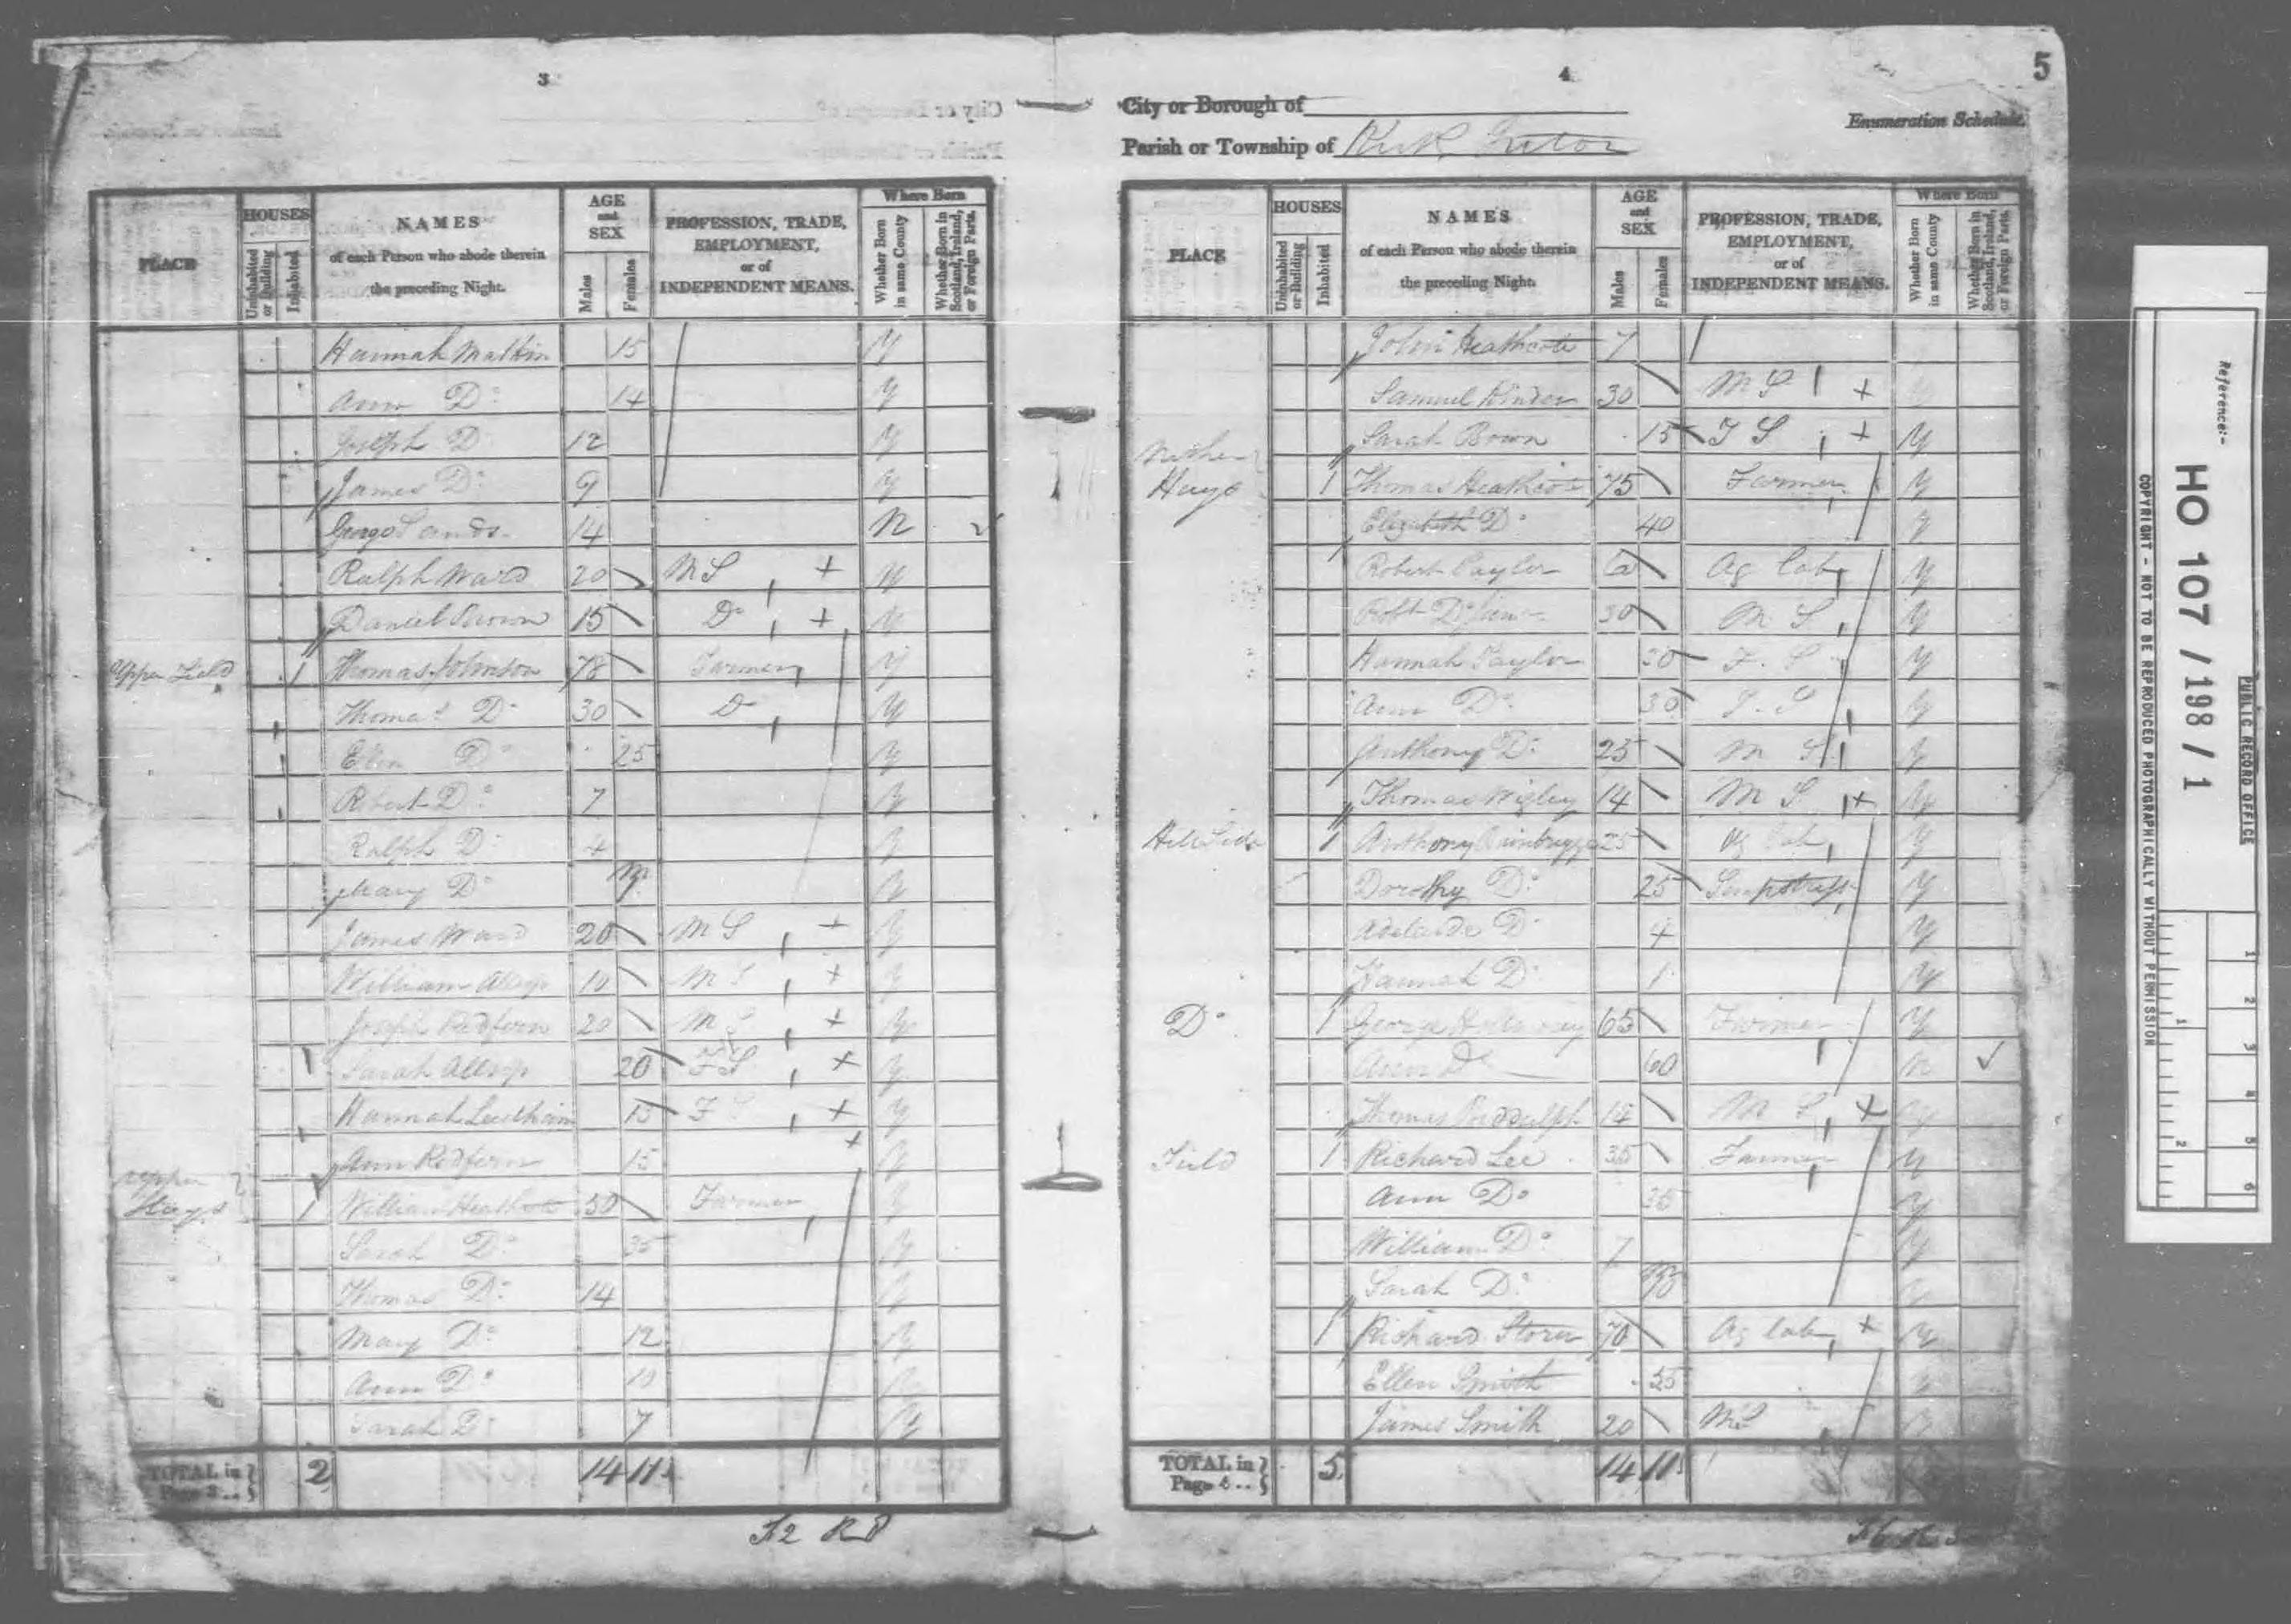 3
PLACE
HOUSES
Uninhabited or Building
Inhabited
NAMES
of each Person who abode therein
the preceding Night.
AGE
and
SEX
Males
Females
PROFESSION, TRADE,
EMPLOYMENT,
or of
INDEPENDENT MEANS.
Where Born
Whether Born in same County
Whether Born in Scotland, Ireland, or Foreign Parts.
Hannah Maltin 15 Y
Ann Do 14 Y
Joseph D 12 Y
James Do 9 Y
George Sands 14 N
Ralph Ward 20 M S + Y
Daniel Brown 15 Do + Y
Upper Field 1 Thomas Johnson 78 Farmer Y
Thomas Do 30 Do Y
Ellen Do 25 Y
Robert Do 7 Y
Ralph Do 4 Y
Mary Do Y
James Ward 20 M S + Y
William Allsop 10 M S + Y
Joseph Redfern 20 M S + Y
Sarah Allsop 20 F S + Y
Hannah 15 F S + Y
Ann Redfern 15 + Y
Upper Hays 1 William Heathcote 50 Farmer Y
Sarah Do 35 Y
Thomas Do 14 Y
Mary Do 12 Y
Ann Do 10 Y
Sarah Do 7 Y
TOTAL in Page 3 .. 2 14 11
4
5
City or Borough of
Enumeration Schedule.
Parish or Township of Kirk Ireton
PLACE
HOUSES
Uninhabited or Building
Inhabited
NAMES
of each Person who abode therein
the preceding Night.
AGE
and
SEX
Males
Females
PROFESSION, TRADE,
EMPLOYMENT,
or of
INDEPENDENT MEANS.
Where Born
Whether Born in same County
Whether Born in Scotland, Ireland, or Foreign Parts.
John Heathcote 7
Samuel Kinder 30 M S +
Sarah Brown 15 F S + Y
Nether Hays 1 Thomas Heathcote 75 Farmer Y
Elizabeth Do 40 Y
Robert Taylor 60 Ag Lab Y
Robt Do Junr 30 M S Y
Hannah Taylor 30 F. S Y
Ann Do 30 F. S Y
Anthony Do 25 M S Y
Thomas Wigley 14 M S + Y
Hill Side 1 Anthony 25 Ag Lab Y
Dorothy Do 25 Sempstress Y
Adelaide Do 4 Y
Hannah Do 1 Y
Do 1 George 65 Farmer Y
Ann Do 60 N
Thomas 14 M S + Y
Field 1 Richard Lee 35 Farmer Y
Ann Do 35 Y
William Do 7 Y
Sarah Do Y
1 Richard Storer 70 Ag Lab + Y
Ellen Smith 55 Y
James Smith 20 M S Y
TOTAL in Page 4 .. 5 14 11
Reference:-
HO 107 / 198 / 1
PUBLIC RECORD OFFICE
COPYRIGHT - NOT TO BE REPRODUCED PHOTOGRAPHICALLY WITHOUT PERMISSION
1 2 3 4 5 6
1 2